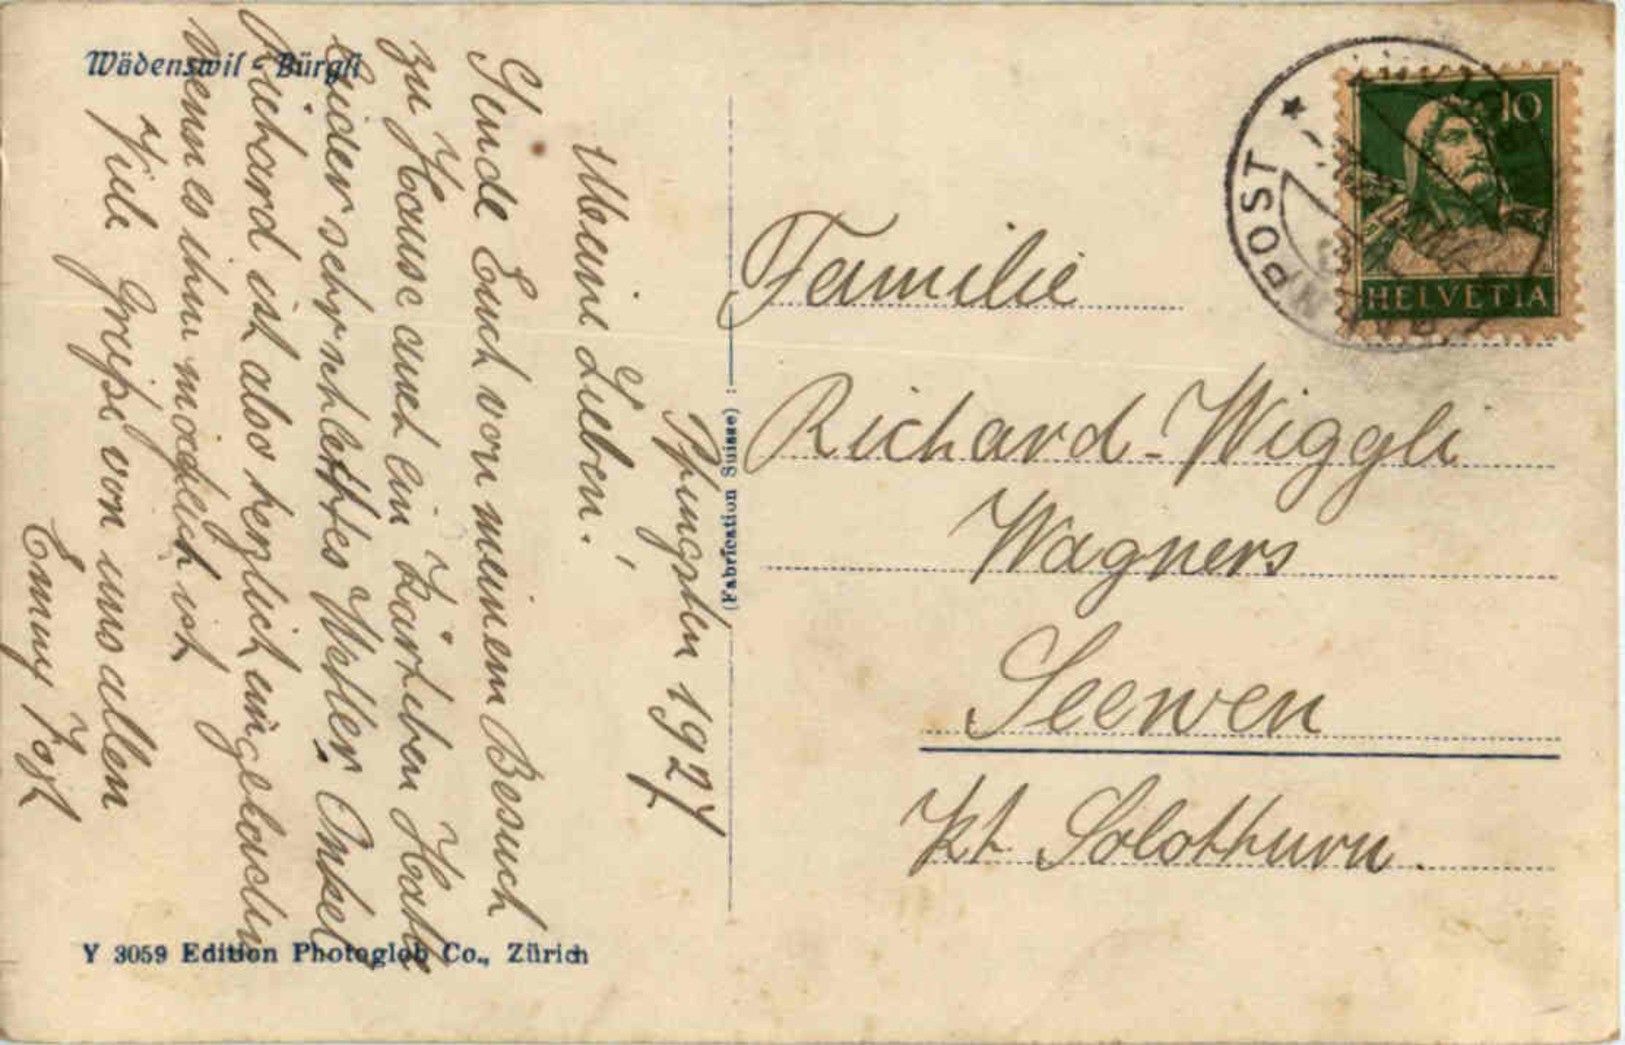 Wädenswil - Bürgli
Pfingsten 1927
Meine Lieben!
Sende Euch von meinem Besuch
zu Hause auch ein Kärtchen. Habe
leider sehr nettes Wetter. Onkel
Richard ist also herzlich eingeladen
wenn es ihm möglich ist
Viele Grüße von uns allen
Emmy Jost
(Fabrication Suisse)
Familie
Richard-Wiggli
Wagners
Seewen
Kt. Solothurn.
10
HELVETIA
POST
Y 3059 Edition Photoglob Co., Zürich